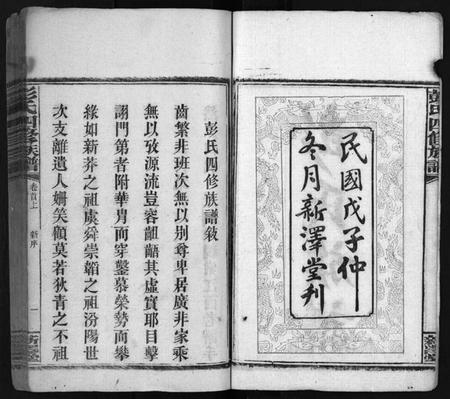 民國戊子仲
冬月新澤堂刋
彭氏四修族譜
彭氏四修族譜敘
齒繁非班次無以别尊卑居廣非家乘
無以攷源流豈容齟齬其虛實耶目擊
謭門第者附華胄而穿鑿慕榮勢而攀
緣如新莽之祖虞舜崇韜之祖汾陽世
次支離遺人姍笑顧莫若狄青之不祖
彭氏四修族譜
卷首上
新序
一